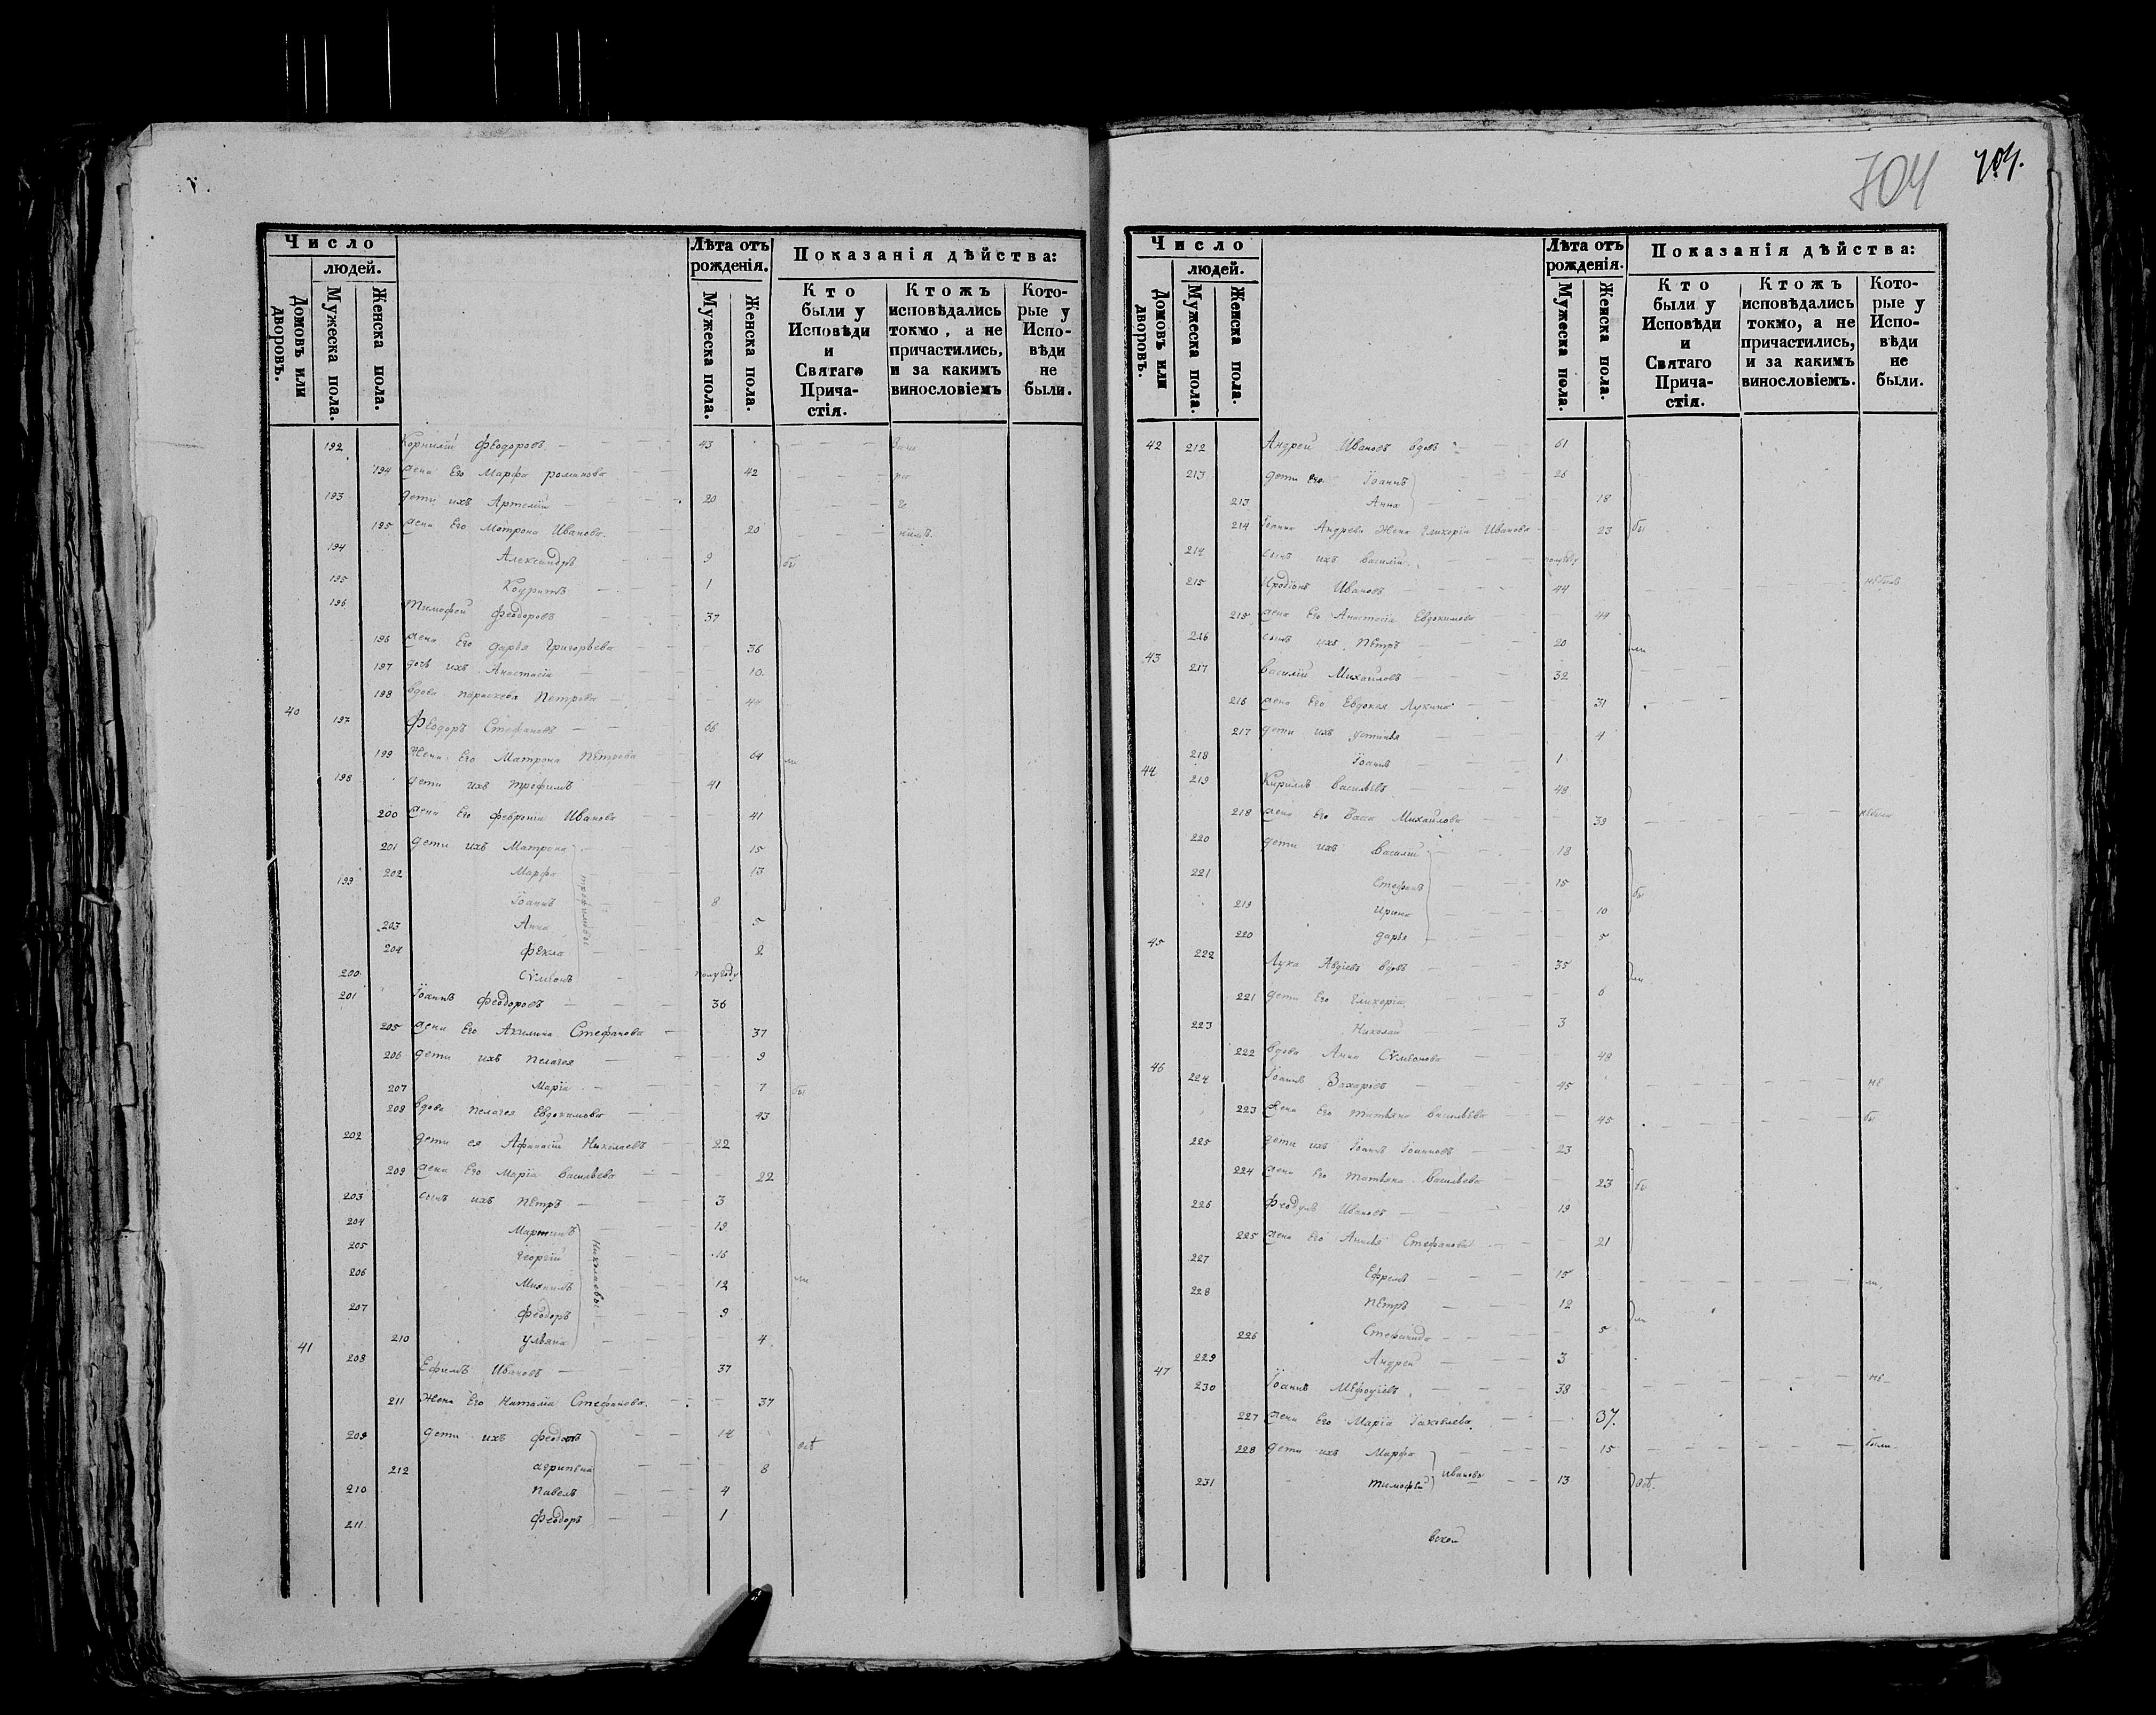 704 704.
Число
людей.
Домовъ или дворовъ.
Мужеска пола.
Женска пола.
Лѣта отъ рожденія.
Мужеска пола.
Женска пола.
Показанія дѣйства:
Кто были у Исповѣди и Святаго Причастія.
Ктожъ исповѣдались токмо, а не причастились, и за какимъ винословіемъ
Которые у Исповѣди не были.
192 Корнилій Феодоровъ 43
194 жена Его Марфа романова 42
193 дети ихъ Артемій 20
195 жена Его Мотрона Иванова. 20
194 Александръ 9 бы
195 1
196 Тимофей Феодоровъ 37
196 жена Его дарья Григорьева 36
197 дочь ихъ Анастасія 10.
198 вдова параскева Петрова 44
40 197 Феодоръ Стефановъ 66
199 Жена Его Матрона Петрова 64 ли
198 дети ихъ трофимъ 41
200 жена Его Февронія Иванова 41
201 дети ихъ Матрона 15
202 Марфа 13
199 Іоаннъ 8
трофимовы
203 Анна 5
204 Фекла 2
200 Сѵмеонъ полугоду
201 Іоаннъ Феодоровъ 36
205 жена Его Акилина Стефанова 37
206 дети ихъ пелагея 9
207 Марія 7 бы
208 вдова пелагея Евдокимова 43
202 дети ея Афанасій Николаевъ 22
209 жена Его Марія васильева 22
203 сынъ ихъ петръ 3
204 Мартинъ 19
205 Георгій 16
206 Михаилъ 12 ли
Николаевы
207 Феодоръ 9
210 ульянія 4
41 208 Ефимъ Ивановъ 37
211 Жена Его Наталія Стефанова. 37
209 дети ихъ Феодотъ 14 всѣ
212 агрипена 8
210 павелъ 4
211 Феодоръ 1
Число
людей.
Домовъ или дворовъ.
Мужеска пола.
Женска пола.
Лѣта отъ рожденія.
Мужеска пола.
Женска пола.
Показанія дѣйства:
Кто были у Исповѣди и Святаго Причастія.
Ктожъ исповѣдались токмо, а не причастились, и за какимъ винословіемъ.
Которые у Исповѣди не были.
42 212 Андрей Ивановъ вдовъ 61
213 дети его Іоаннъ 26
213 Анна 18
214 Іоанна Андреева Жена Гликерія Иванова 23 бы
214 сынъ ихъ василій полугоду
215 Иродіонъ Ивановъ 44 не былъ
215 жена Его Анастасія Евдокимова 44
216 сынъ ихъ петръ 20 ли
43 217 василій Михайловъ 32
216 жена Его Евдокея Лукина 31
217 дети ихъ устинья 4
218 Іоаннъ 1
44 219 Кирилъ васильевъ 49
218 жена Его Васса Михайлова 39 не была
220 дети ихъ василій 18
221 Стефанъ 15 бы
219 ирина 10
220 дарья 5
45 222 Лука Авдіевъ вдовъ 35 ли
221 дети Его Гликерія 6
223 Николай 3
222 вдова Анна Сѵмеонова 48
46 224 Іоаннъ Захаровъ 45 не
223 жена Его татьяна васильева 45 бы
225 дети ихъ Іоаннъ Іоанновъ 23
224 жена Его татьяна васильева 23 бы
226 Феодулъ Ивановъ 19
225 жена Его Анисья Стефанова 21
227 Ефремъ 15 ли,
228 петръ 12 ли
226 Стефанида 5
229 Андрей 3
47 230 Іоаннъ Мефодіевъ 38 не
227 жена Его Марія Іаковлева 37.
228 дети ихъ Марфа 15 были
Ивановы
231 тимофей 13 всѣ.